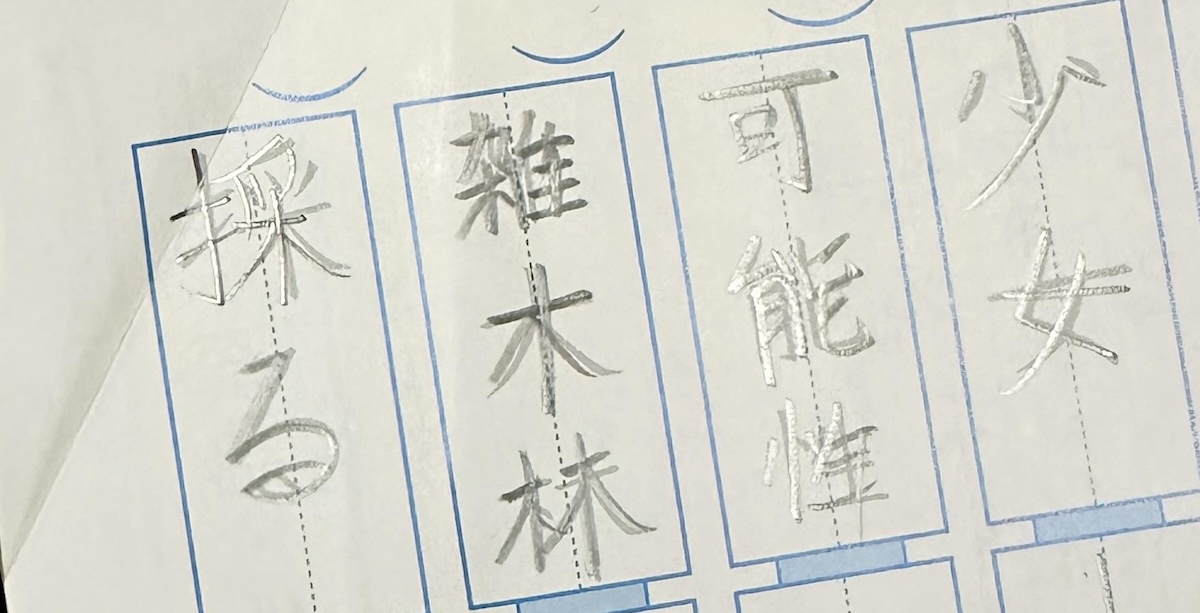 少女
可能性
雑木林
採る